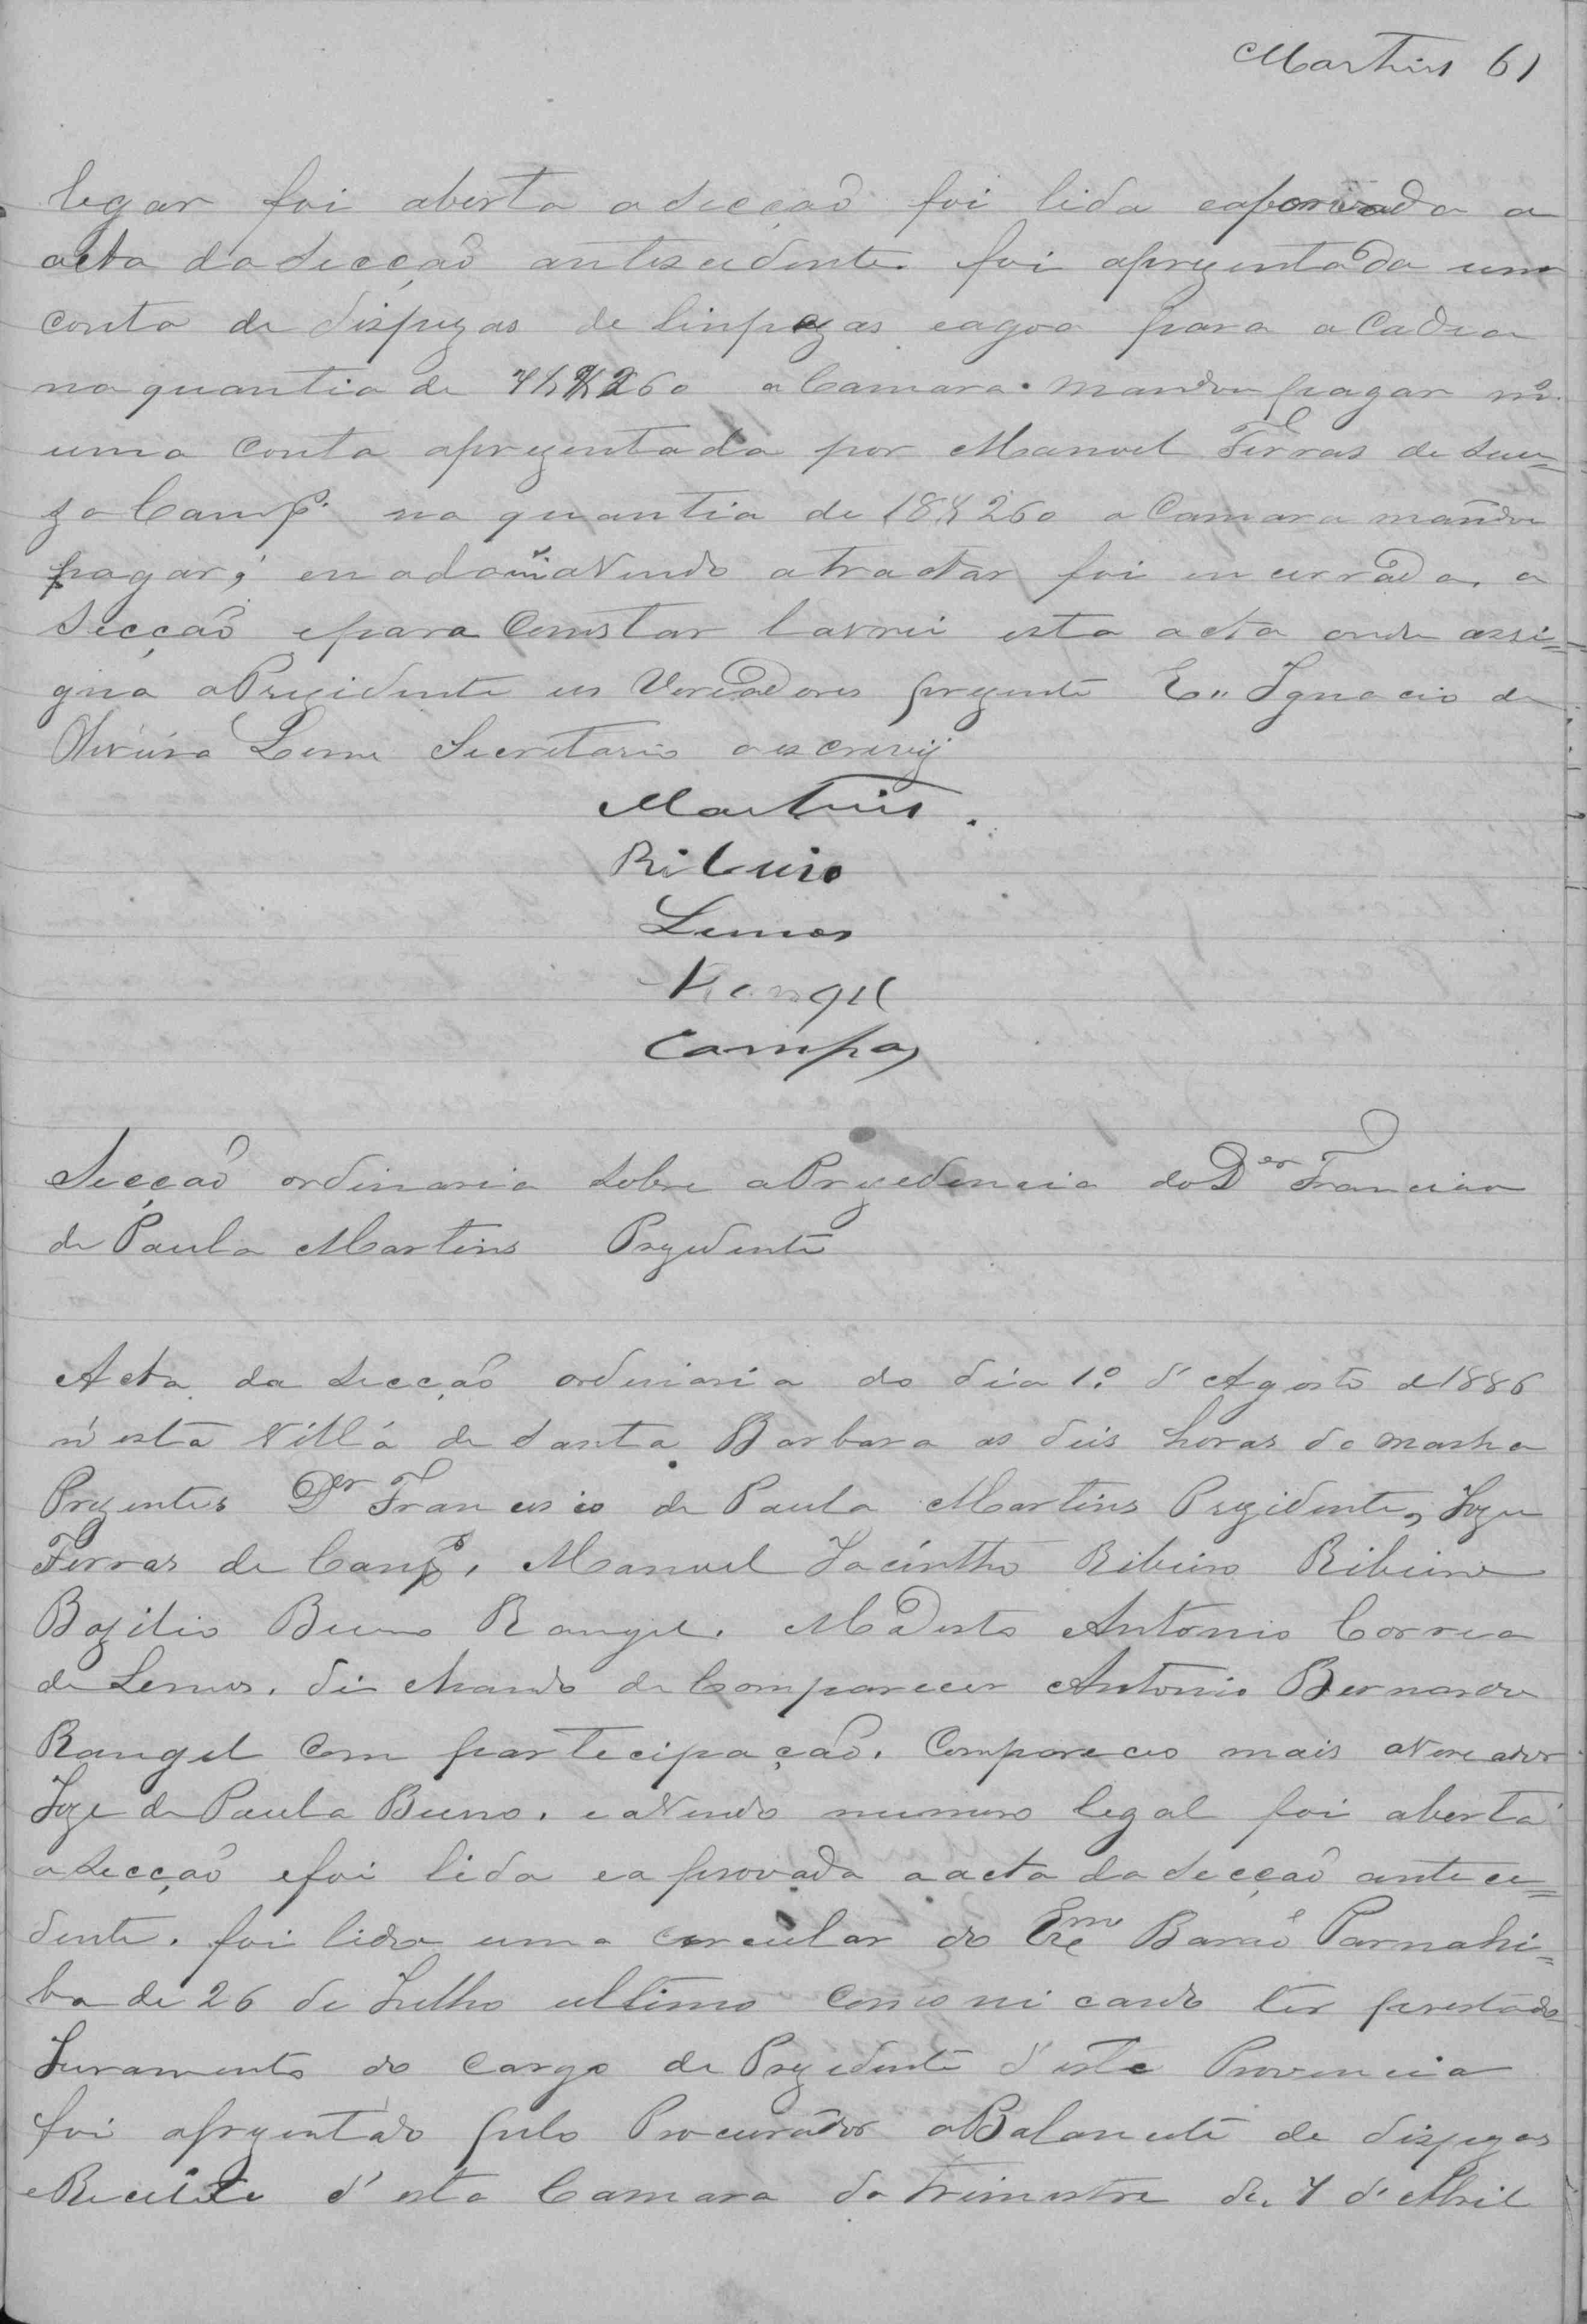 Martins 61
legar foi aberta a secçaõ foi lida eaporovada a
acta da secçaõ antescidente. foi aprezentada uma
conta de dispezas de linpezas eagoa para a Cadea
na quantia de a Camara mandou pagar
uma conta aprezentada por Manoel Ferras de Sou=
za Camp.º na quantia de 18$260 a Camara mandou
pagar; enada avendo atractar foi encerrada a
Secçaõ epara Constar lavrei esta acta onde assi=
gna oPrezidente eos Vereadores prezente E" Ignacio de
Oliveira Leme Secretario oescrevij
Martins.
Ribeiro
Lemos
Rangel
Campos
Secçaõ ordinaria sobre aPrezedencia do Der Francisco
de Paula Martins Prezidente
Acta da secçaõ ordinaria do dia 1.º d'Agosto de 1886
n'esta Villa de Santa Barbara as deis horas da manha
Prezentes Dr Francisco de Paula Martins Prezidente, Joze
Ferras de Campos, Manoel Jacintho Ribeiro Ribeiro
Bazilio Bueno Rangel. Modesto Antonio Correa
de Lemos. deichando de Comparecer Antonio Bernardu
Rangel Com partecipaçaõ. Compareceo mais oVereador
Joze de Paula Bueno. eavendo numero legal foi aberta
a secçaõ efoi lida eaprovada aacta da secçaõ antece=
dente. foi lida uma circular do Exmº Baraõ Parnahi=
ba de 26 de Julho ultimo comonicando ter prestado
Juramento do cargo de Prezidente d'esta Provincia
foi aprezentado pelo Procurador oBalancete de dispezas
eReceita d'esta Camara do trimestre de 1 d'Abril